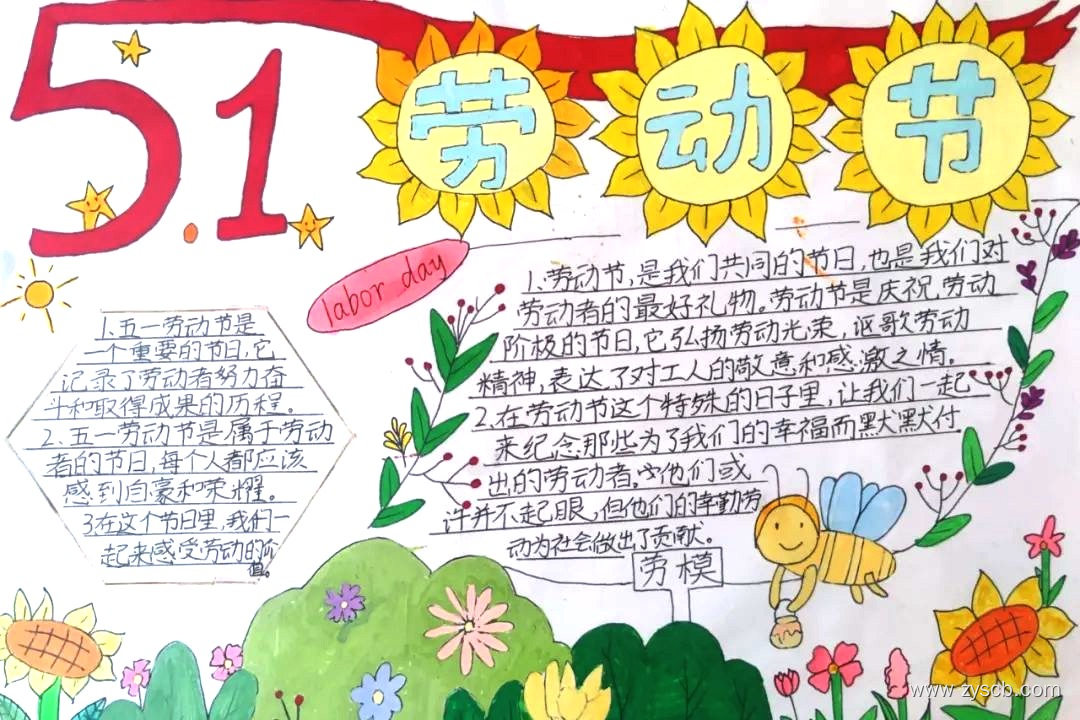 5.1
劳动节
labor day
1.五一劳动节是
一个重要的节日,它
记录了劳动者努力奋
斗和取得成果的历程。
2、五一劳动节是属于劳动
者的节日,每个人都应该
感到自豪和荣耀。
3在这个节日里,我们一
起来感受劳动的价
值。
1.劳动节,是我们共同的节日,也是我们对
劳动者的最好礼物。劳动节是庆祝劳动
阶极的节日,它弘扬劳动光荣,讴歌劳动
精神,表达了对工人的敬意和感激之情。
2.在劳动节这个特殊的日子里,让我们一起
来纪念那些为了我们的幸福而默默付
出的劳动者。他们或
许并不起眼,但他们的辛勤劳
动为社会做出了贡献。
劳模
www.zyscb.com